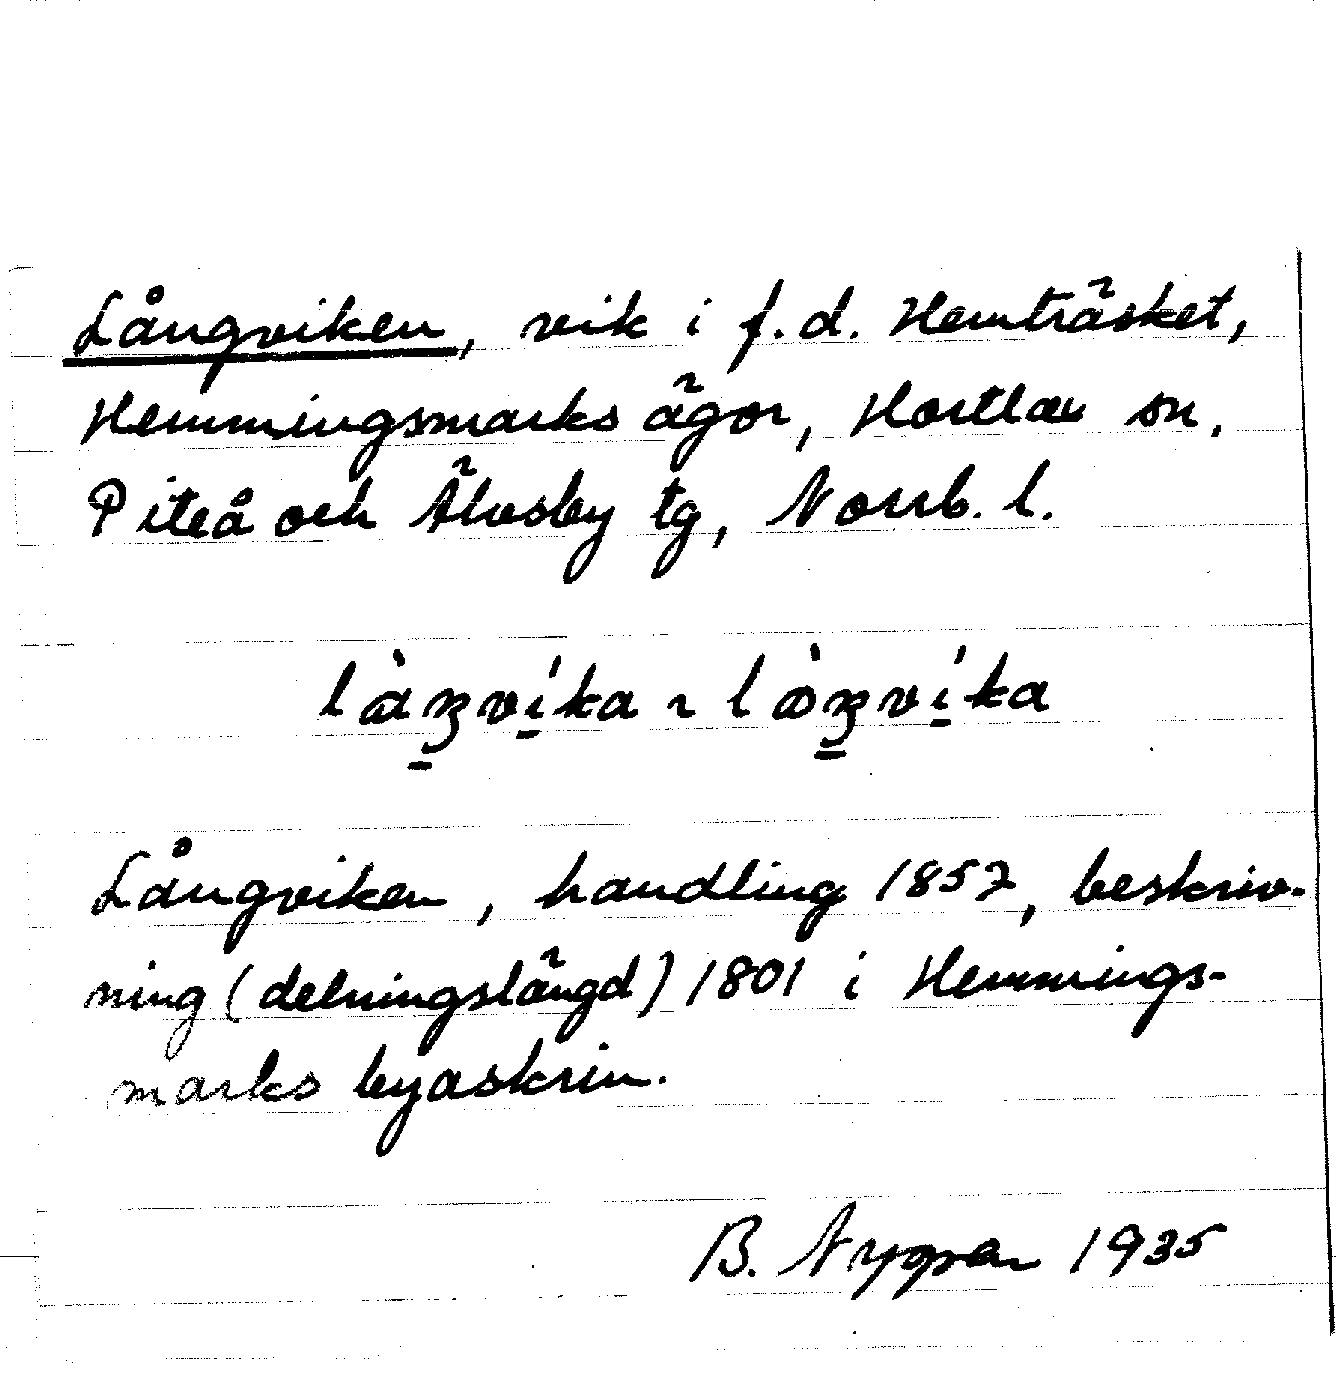 Långviken, vik i f.d. Hemträsket,
Hemmingsmarks ägor, Hortlax sn,
Piteå och Älvsby tg, Norrb. l.
Långviken, handling 1857, beskriv-
ning (delningslängd) 1801 i Hemmings-
marks byaskrin.
B. 1935